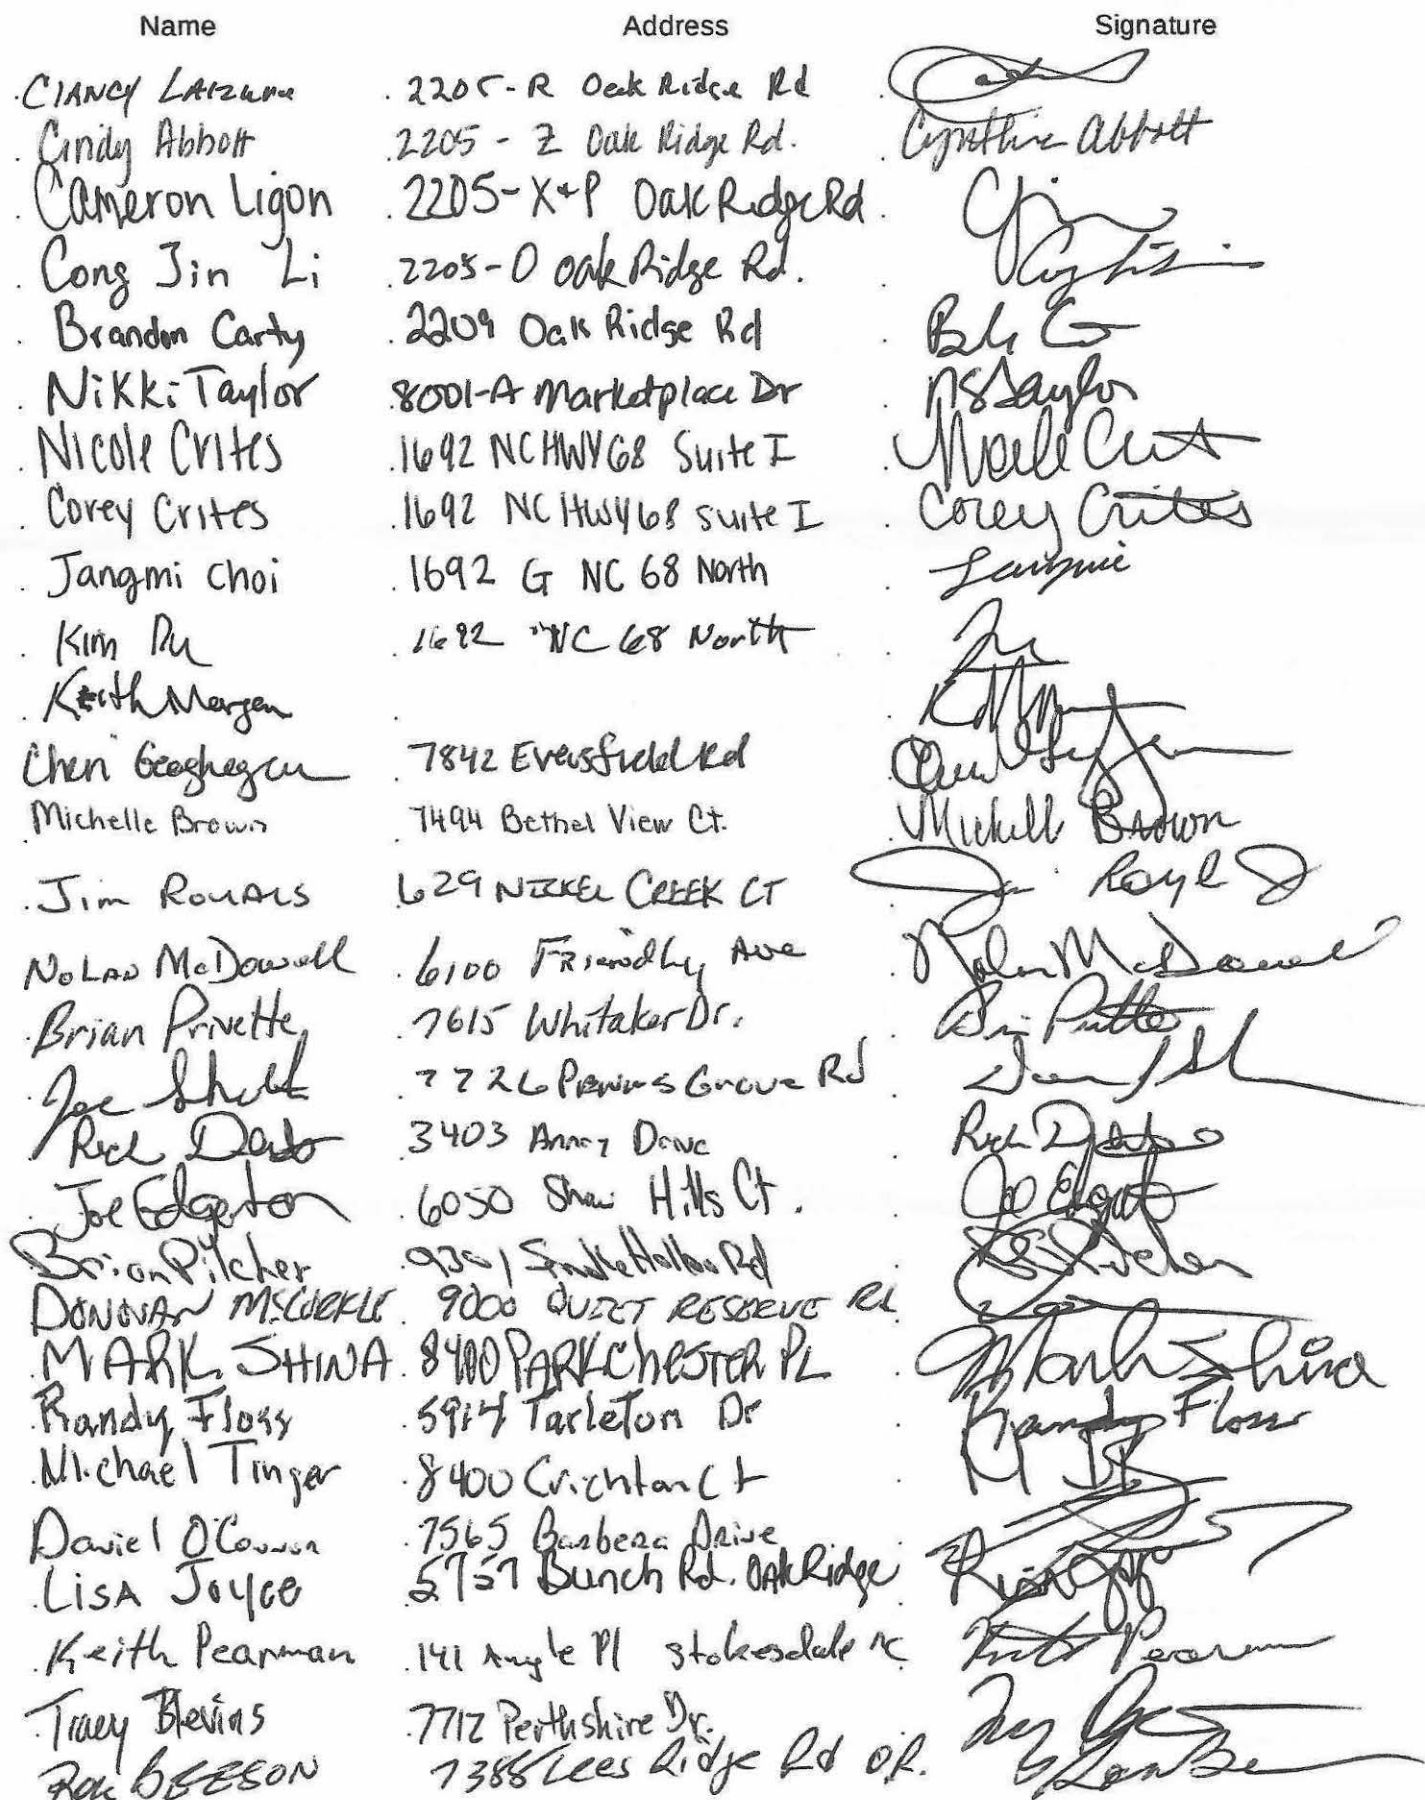 Name Address Signature
CIANCY 2205-R Oak Ridge Rd
Cindy Abbott 2205 - Z Oak Ridge Rd. Cynthia Abbott
Cameron Ligon 2205-X+P Oak Ridge Rd
Cong Jin Li 2205-O Oak Ridge Rd.
Brandon Carty 2209 Oak Ridge Rd
Nikki Taylor 8001-A Marketplace Dr NSTaylor
Nicole Crites 1692 NC HWY 68 Suite I Nicole Crites
Corey Crites 1692 NC HWY 68 Suite I Corey Crites
Jangmi Choi 1692 G NC 68 North
Kim Du 1692 NC 68 North
Keith Morgan
Cheri Geoghegan 7842 Eversfield Rd
Michelle Brown 7494 Bethel View Ct. Michelle Brown
Jim ROYALS 629 NICKEL CREEK CT Jim
NOLAN McDowell 6100 Friendly Ave Nolan McDowell
Brian Privette 7615 Whitaker Dr.
Joe 7726 Grove Rd
Rich 3403 Rich
Joe Edgerton 6050 Shaw Hills Ct. Joe Edgerton
Brian Pilcher Rd
DONOVAN McCORKLE 9000 QUIET RESERVE Rd
MARK SHINA 8400 PARKCHESTER PL Mark Shina
Randy Floss 5914 Tarleton Dr Randy Floss
Michael Tinger 8400 Crichton Ct
Daniel O'Connor 7565 Barbera Drive
LISA JOYCE 5757 Bunch Rd. OAK Ridge
Keith Pearman 141 Angle Pl Stokesdale NC Keith Pearman
Tracy Blevins 7712 Perthshire Dr.
Ron BEESON 7388 Lees Ridge Rd O.R.